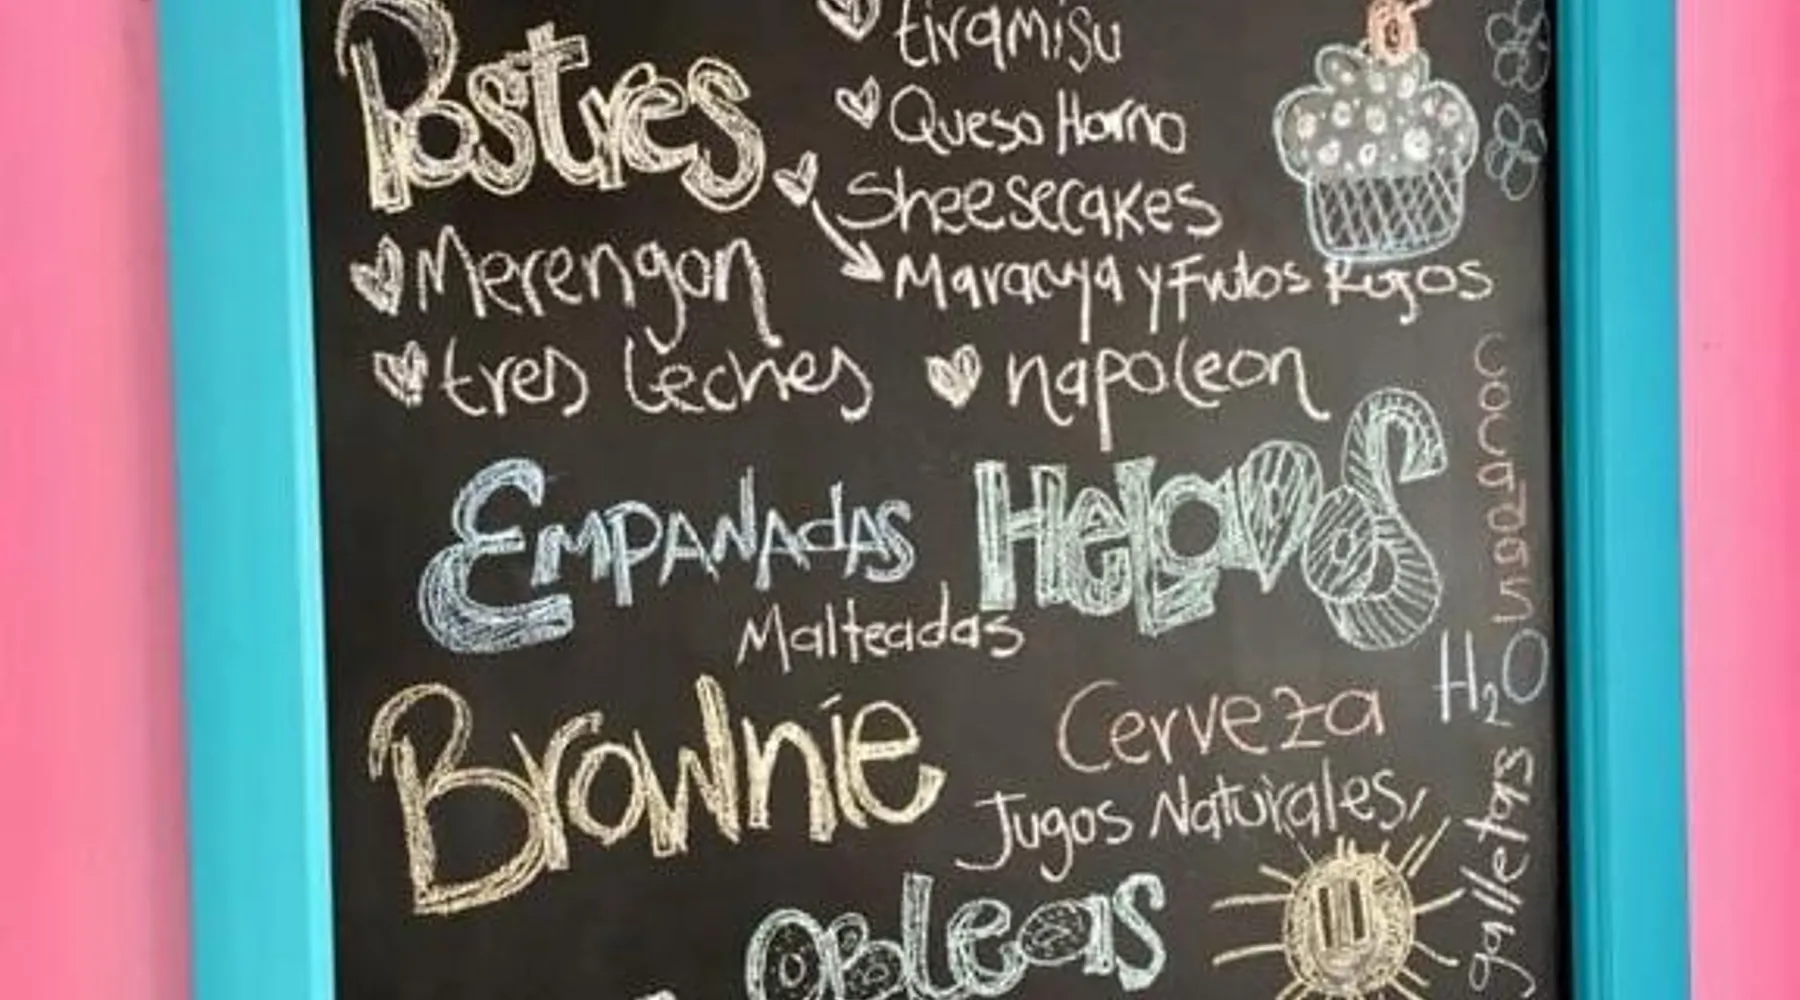 Postres
tiramisu
Queso Horno
Sheesecakes
Maracuya y Frutos Rojos
Merengon
tres leches
napoleon
EMPANADAS
HELADOS
Malteadas
Brownie
Cerveza
Jugos Naturales
Obleas
H2O
galletas